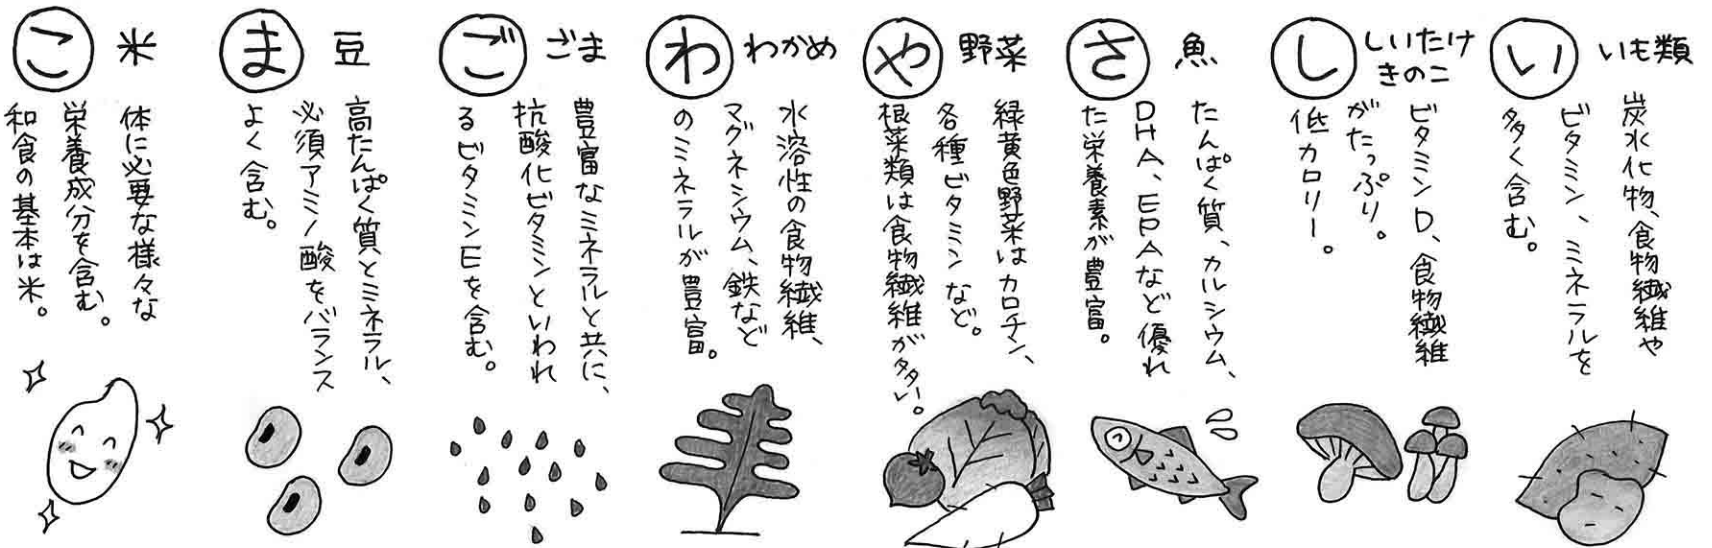 こ 米
体に必要な様々な
栄養成分を含む。
和食の基本は米。
ま 豆
高たんぱく質とミネラル、
必須アミノ酸をバランス
よく含む。
ご ごま
豊富なミネラルと共に、
抗酸化ビタミンといわれ
るビタミンEを含む。
わ わかめ
水溶性の食物繊維、
マグネシウム、鉄など
のミネラルが豊富。
や 野菜
緑黄色野菜はカロチン、
各種ビタミンなど。
根菜類は食物繊維が多い。
さ 魚
たんぱく質、カルシウム、
DHA、EPAなど優れ
た栄養素が豊富。
し しいたけ
きのこ
ビタミンD、食物繊維
がたっぷり。
低カロリー。
い いも類
炭水化物、食物繊維や
ビタミン、ミネラルを
多く含む。